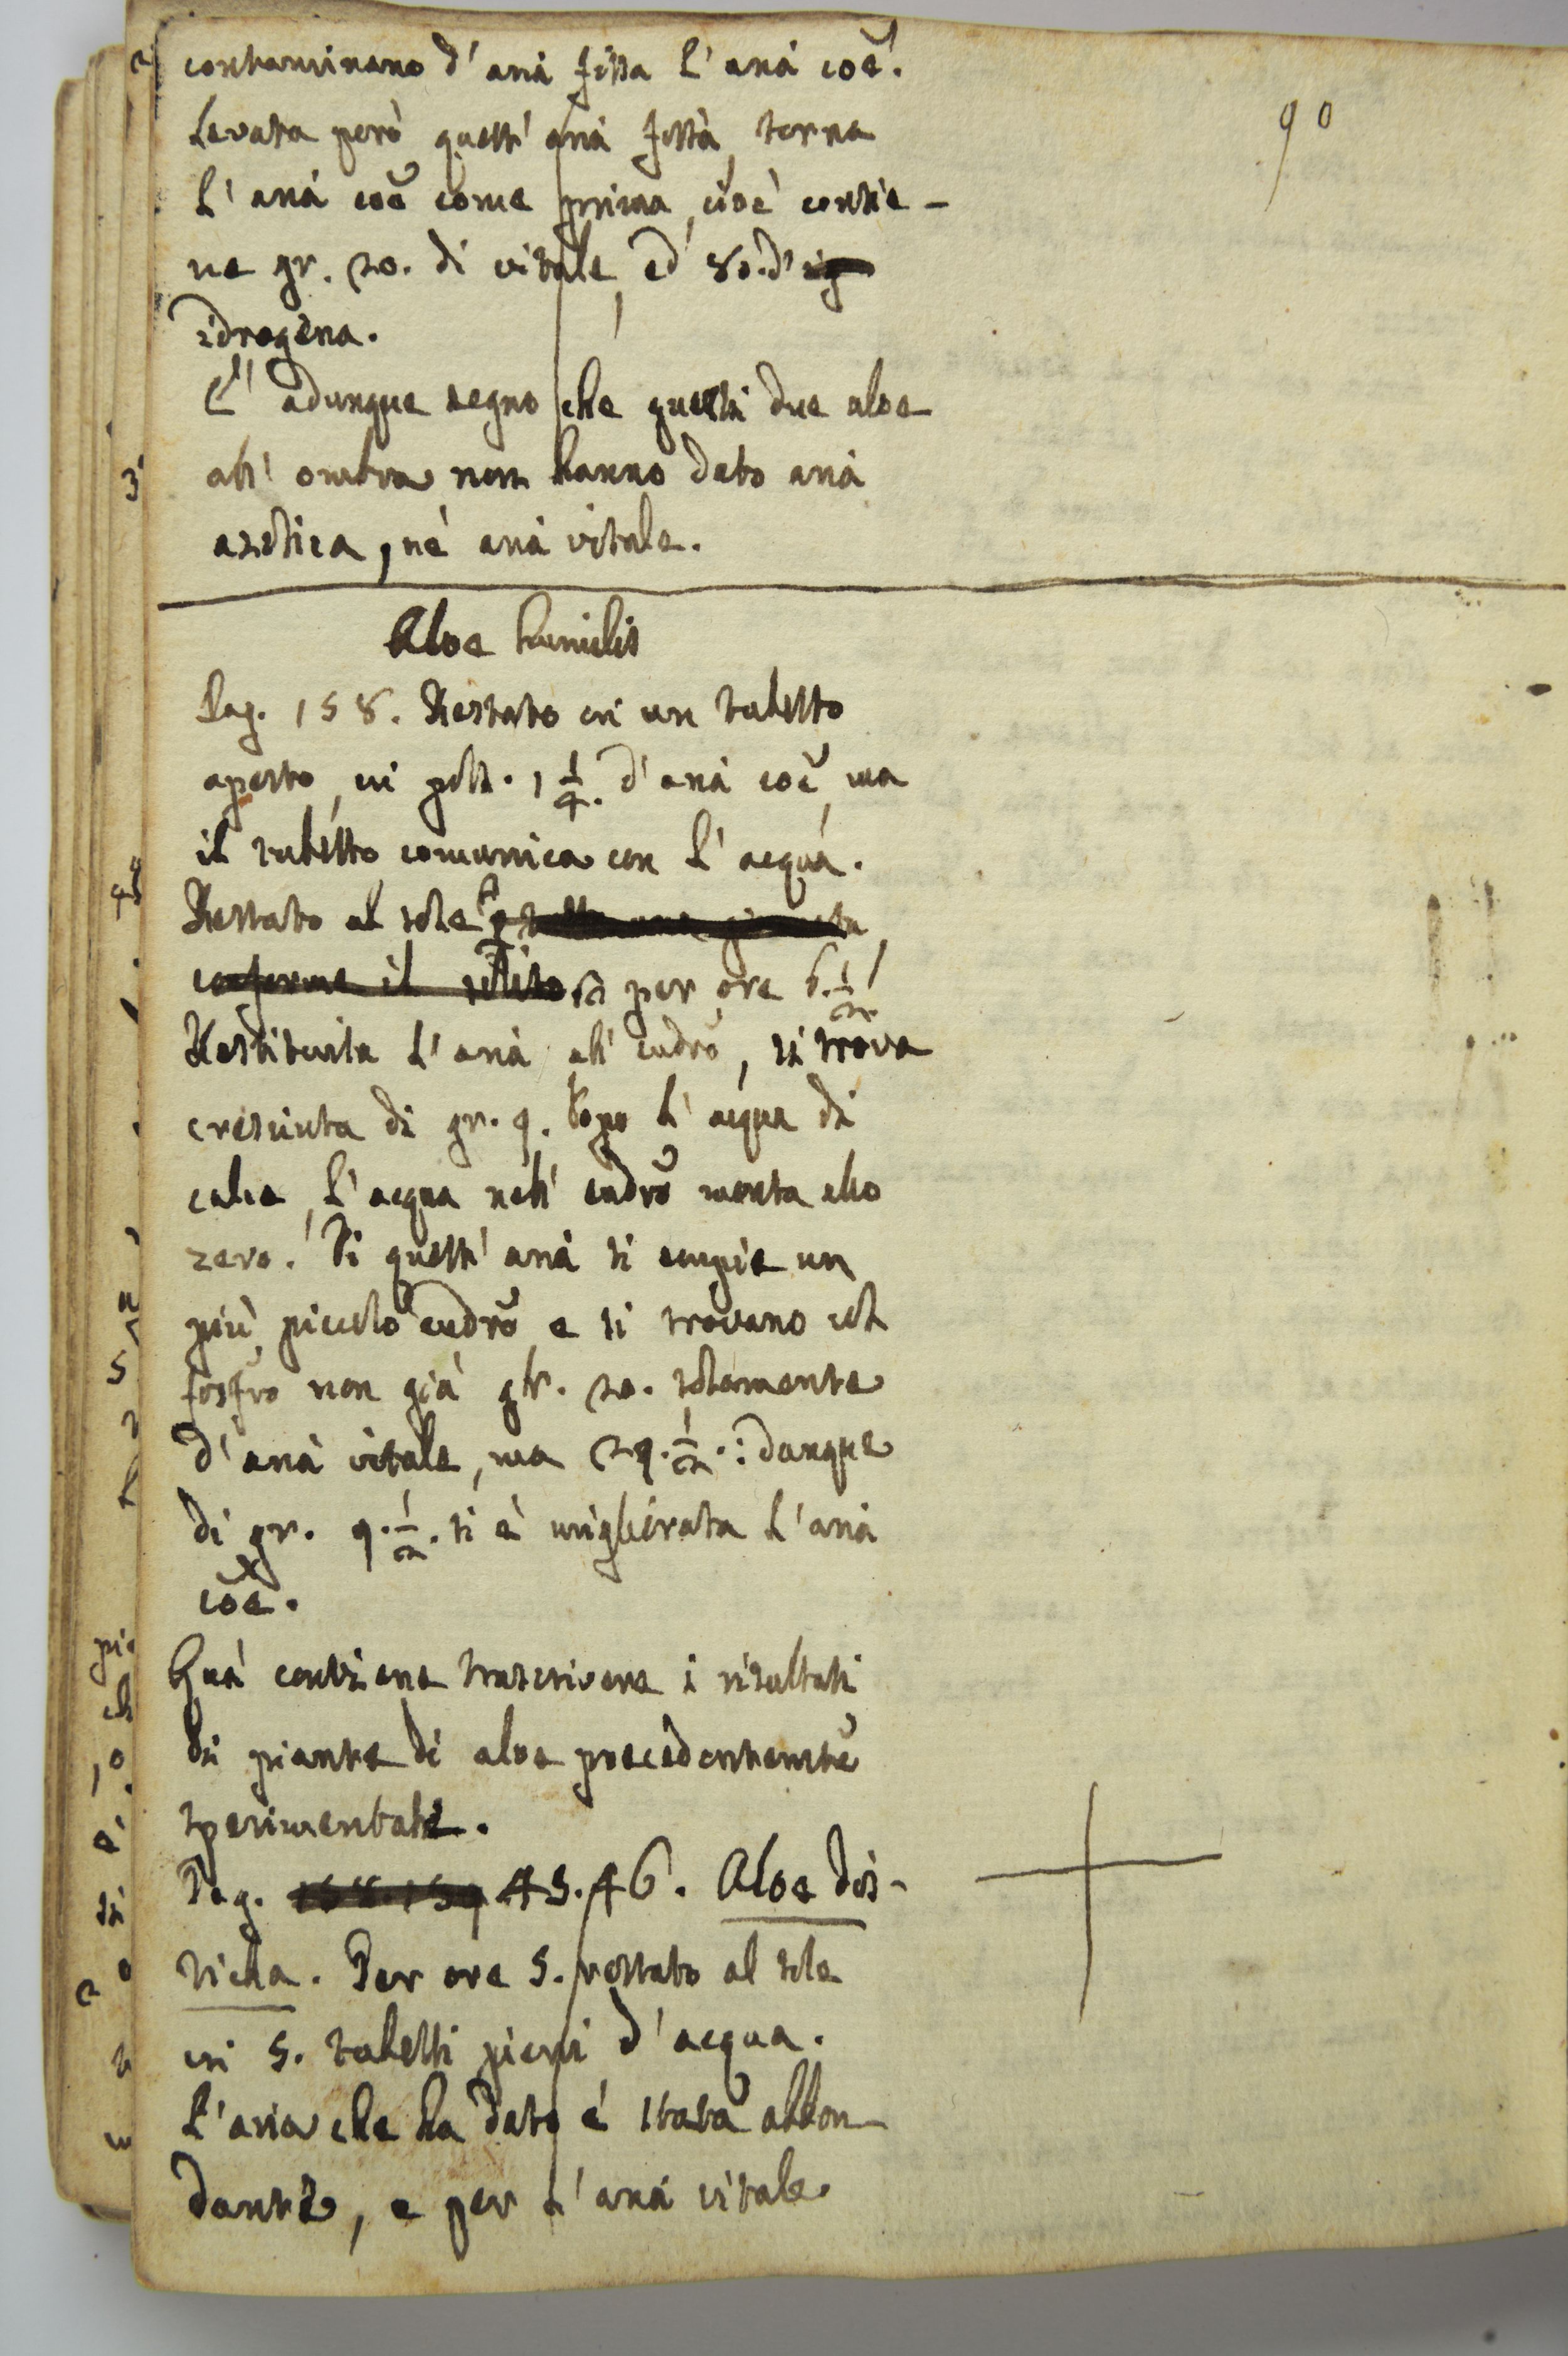 90
contaminano d'aria fissa l'aria coe.
Levata però quest'aria fissa, torna
l'aria coe come prima, cioè contie-
ne gr. 20. di vitale, ed 80. d'
idrogena.
E' adunque segno che questi due aloe
all'ombra non hanno dato aria
azotica, nè aria vitale.
Aloe humilis
Pag. 158. Restato in un tubetto
aperto, in poll. 1 1/4. d'aria coe, ma
il tubetto comunica con l'acqua.
Restato al sole
conforme il solito per ore 6. 1/2.
Restituita l'aria all'eudro, si trova
cresciuta di gr. 9. Dopo l'acqua di
calce, l'acqua nell'eudro monta allo
zero. Di quest'aria si empie un
più piccolo eudro e si trovano col
fosfro non già gr. 20. solamente
d'aria vitale, ma 29. 1/2.: dunque
di gr. 9. 1/2. si è migliorata l'aria
coe.
Quà conviene trascrivere i risultati
di piante di aloe precedentemte
sperimentate.
Pag. 158. 159 45. 46. Aloe dis-
ticha. Per ore 5. restato al sole
in 5. tubetti pieni d'acqua.
L'aria che ha dato è stata abbon-
dante, e per l'aria vitale